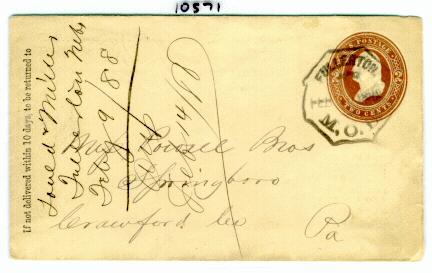 10571
If not delivered within 10 days, to be returned to
Fullerton Neb
Feb 9/88
POSTAGE
TWO CENTS
FULLERTON
FEB
M.O.B.
Bros
Springboro
Crawford Co Pa